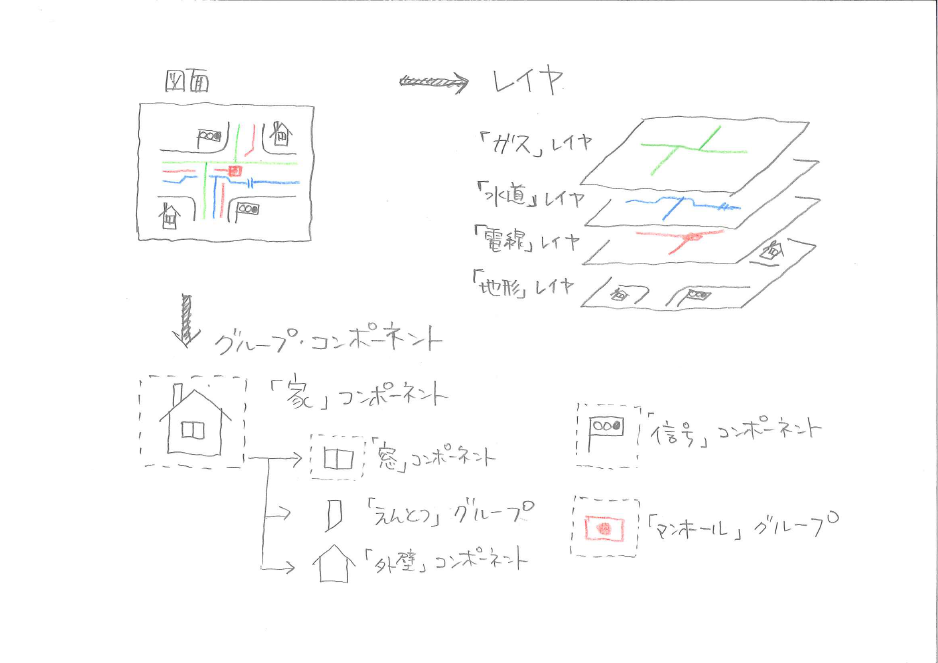 図面
レイヤ
「ガス」レイヤ
「水道」レイヤ
「電線」レイヤ
「地形」レイヤ
グループ・コンポーネント
「家」コンポーネント
「窓」コンポーネント
「えんとつ」グループ
「外壁」コンポーネント
「信号」コンポーネント
「マンホール」グループ